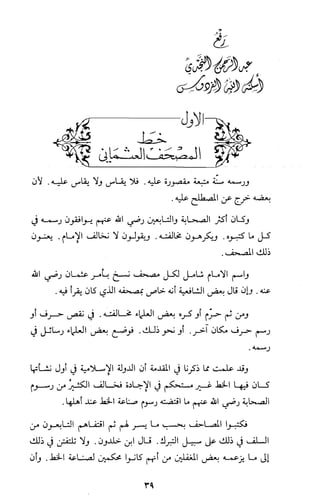 رفع
عبد الرحمن النجدي
أسكنه الله الفردوس
الأول
خط
المصحف العثماني
ورسمه سنّة متبعة مقصورة عليه . فلا يقاس ولا يقاس عليه . لأن
بعضه خرج عن المصطلح عليه .
وكان أكثر الصحابة والتابعين رضي الله عنهم يوافقون رسمه في
كل ما كتبوه . ويكرهون مخالفته . ويقولون لا نخالف الإمام . يعنون
ذلك المصحف .
واسم الإمام شامل لكل مصحف نسخ بأمر عثمان رضي الله
عنه . وإن قال بعض الشافعية أنه خاص بمصحفه الذي كان يقرأ فيه .
ومن ثم حرّم أو كره بعض العلماء مخالفته . في نقص حرف أو
رسم حرف مكان آخر . أو نحو ذلك . فوضع بعض العلماء رسائل في
رسمه .
وقد علمت مما ذكرنا في المقدمة أن الدولة الإسلامية في أول نشأتها
كان فيها الخط غير مستحكم في الإجادة فخالف الكثير من رسوم
الصحابة رضي الله عنهم ما اقتضته رسوم صناعة الخط عند أهلها .
فكتبوا المصاحف بحسب ما يسر لهم ثم اقتفاهم التابعون من
السلف في ذلك على سبيل التبرك . قال ابن خلدون . ولا تلتفتن في ذلك
إلى ما يزعمه بعض المغفلين من أنهم كانوا محكمين لصناعة الخط . وأن
٣٩